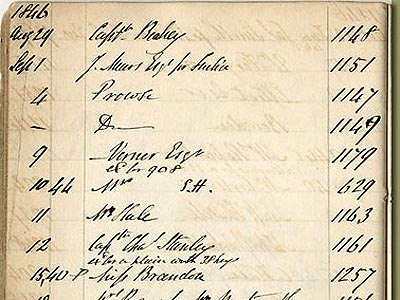 1846
Aug 29 Captn Beakey 1148
Sept 1 J. Mears Esqr for 1151
4 Prowse 1147
– Do 1149
9 Verner Esqr 1179
ex for 908
10 44 Mrs S.H. 629
11 Mr Kale 1163
12 Captn Chas Stanley 1161
ex for a plain with 38 keys
15, 40 P Miss Brandon 1257